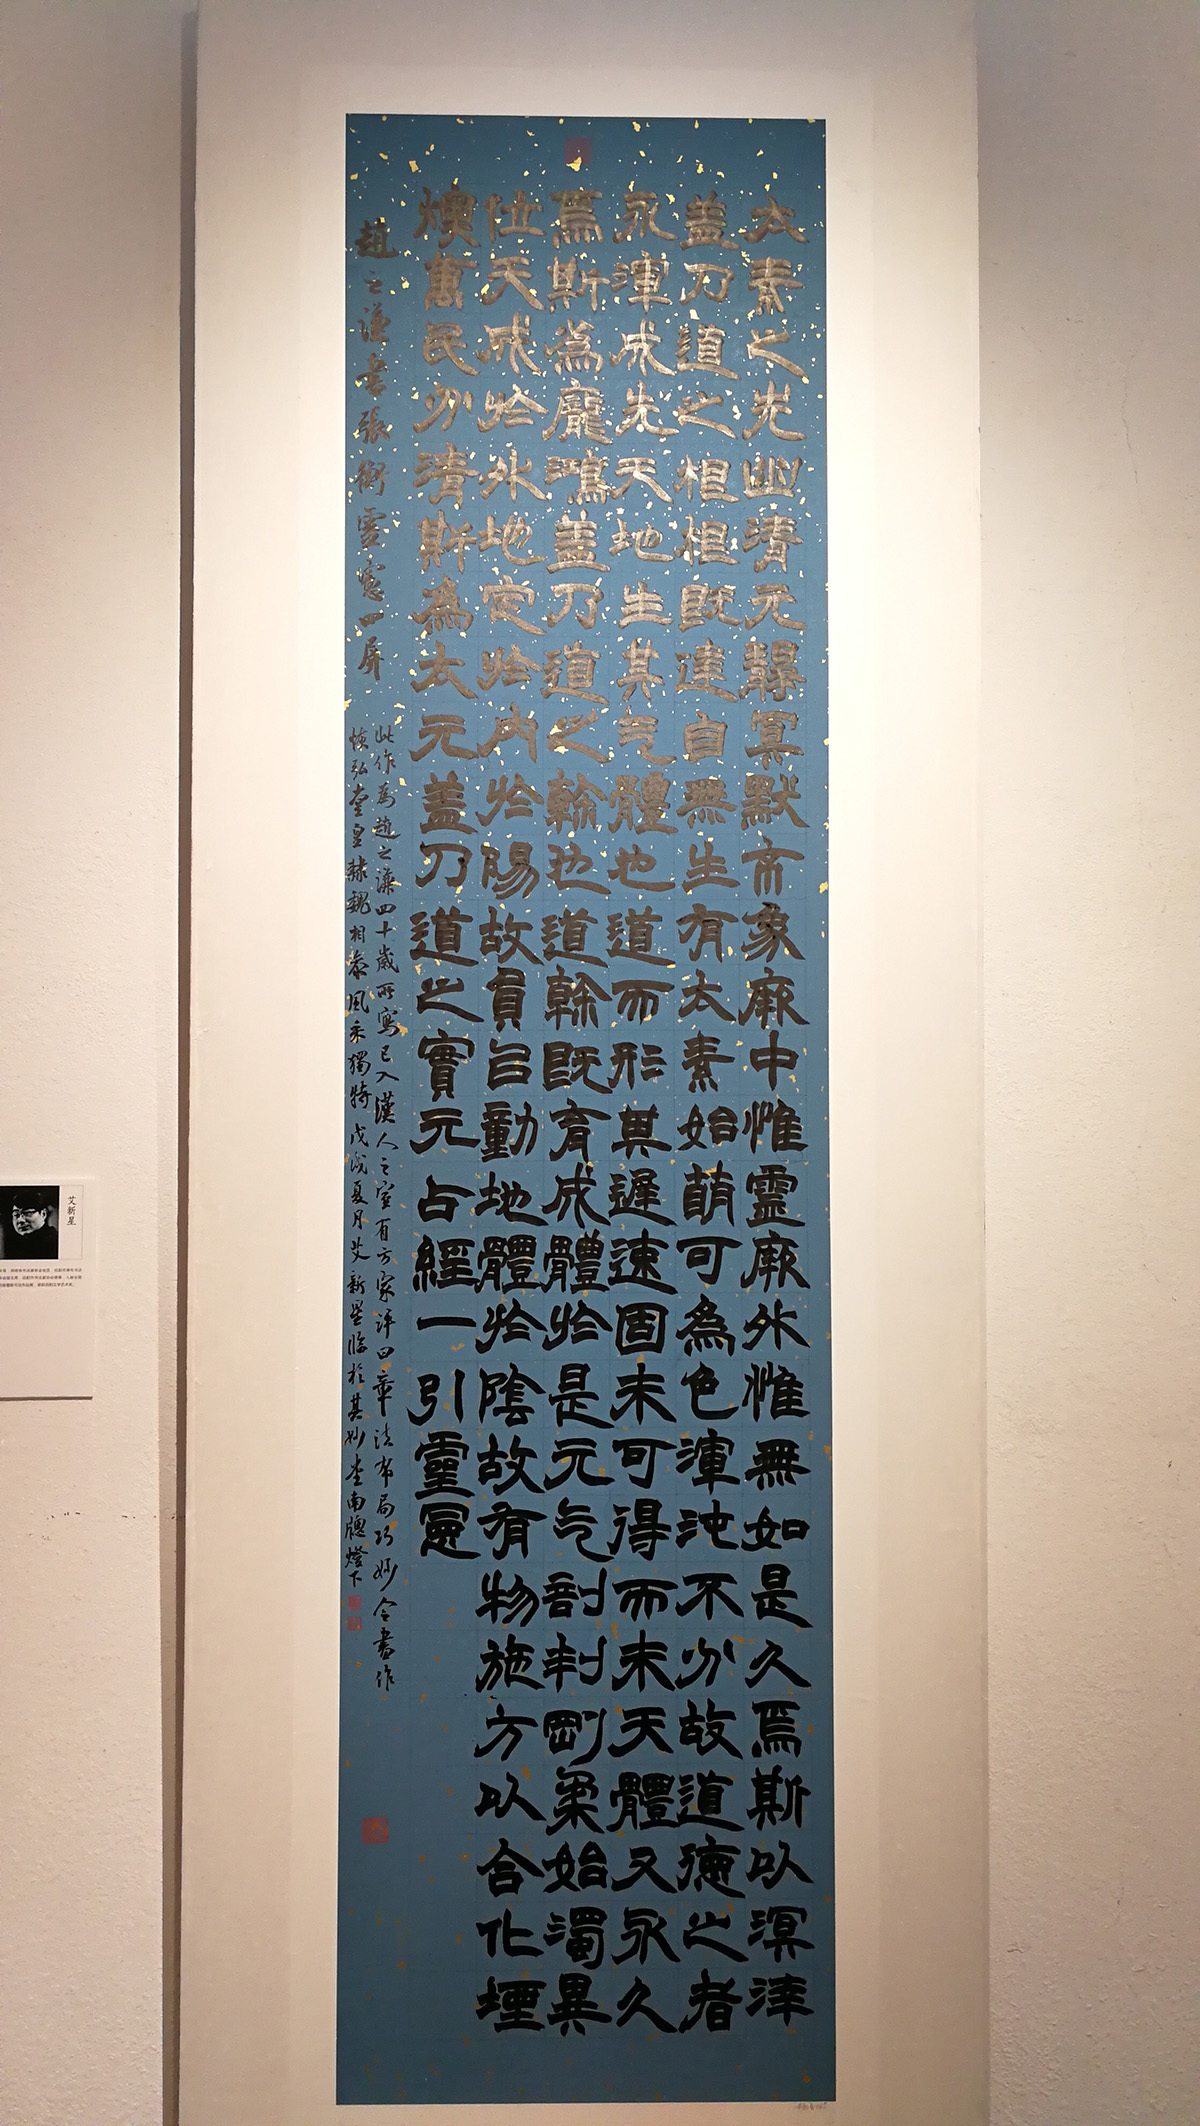 太素之先幽清元靜冥默帀象厥中惟靈厥外惟無如是久焉斯以溟涬
蓋乃道之根根既建自無生有太素始萌可為色渾沌不分故道德之者
永渾成先天地生其气體也道而形其遲速固未可得而未天體又永久
焉斯為龐鴻蓋乃道之幹也道幹既育成體於是元气剖判剛柔始濁異
位天成於外地定於內於陽故員以動地體於陰故有物施方以合化堙
燠萬民分清斯為太元蓋乃道之實元占經一引靈憲
趙之謙書張衡靈憲四屏
此作為趙之謙四十歲所寫已入漢人之室有方家評曰章法布局巧妙令書作
恢弘堂皇隸魏相參風采獨特戊戌夏月艾新星臨於其妙堂南牕燈下
艾新星